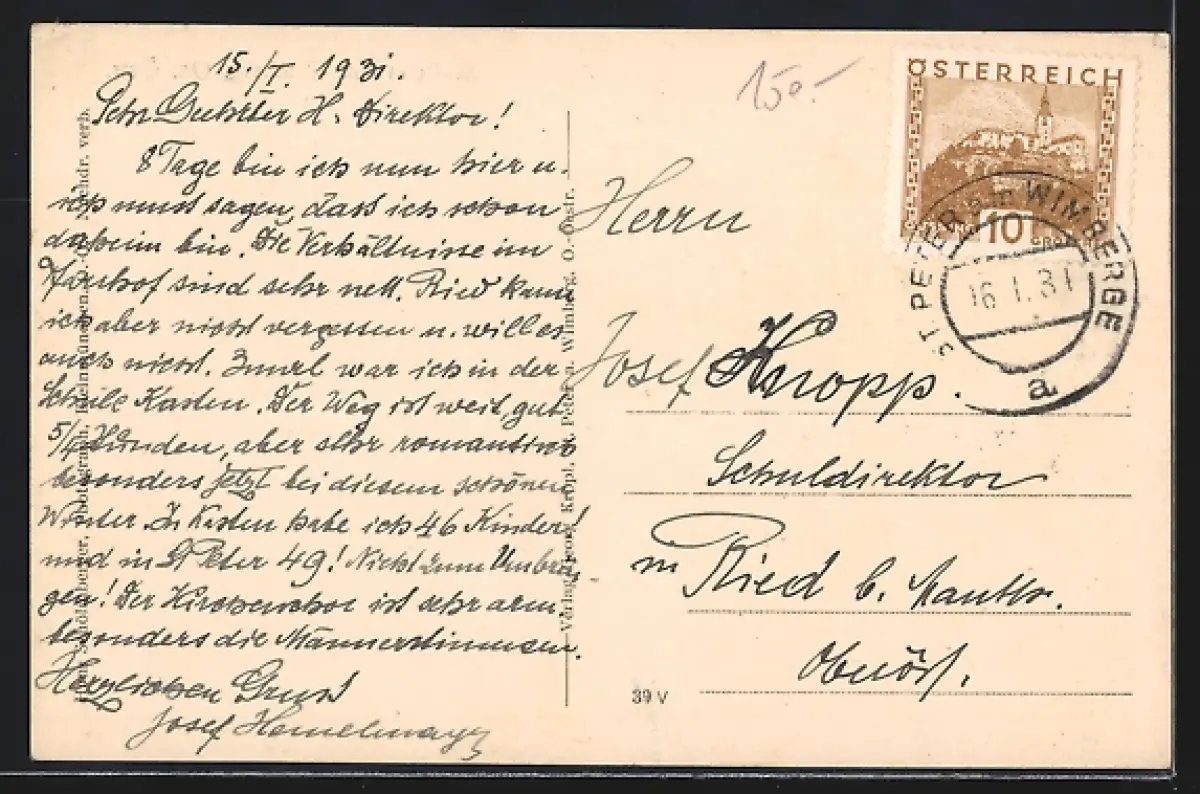 15./I. 1931.
Sehr Geehrter H. Direktor!
8 Tage bin ich nun hier u.
ich muss sagen, dass ich schon
daheim bin. Die Verhältnisse im
Pfarrhof sind sehr nett. Ried kann
ich aber nicht vergessen u. will es
auch nicht. 2mal war ich in der
Schule Kasten. Der Weg ist weit, gut
5/4 Stunden, aber sehr romantisch
besonders jetzt bei diesem schönen
Winter. In Kasten habe ich 46 Kinder!
und in St Peter 49! Nicht zum Umbrin-
gen! Der Kirchenchor ist sehr arm,
besonders die Männerstimmen.
Herzlichen Gruss
Josef
Verlag Georg Kropf, Peter a. Wimberg, O.-Öster.
150.-
ÖSTERREICH
10
GROSCHEN
ST PETER am WIMBERGE
16.I.31
a
Herrn
Josef Kropp.
Schuldirektor
in Ried b. Mauth.
Oberöst.
39 V